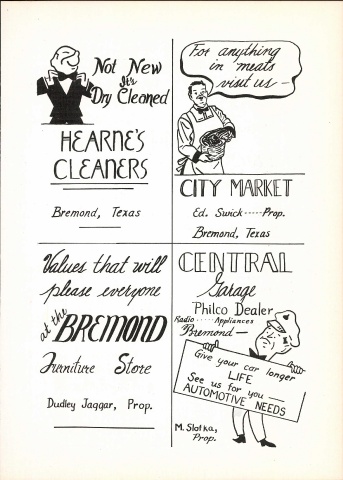 Not New
It's
Dry Cleaned
HEARNE'S
CLEANERS
Bremond, Texas
For anything
in meats
visit us —
CITY MARKET
Ed. Swick-----Prop.
Bremond, Texas
Values that will
please everyone
at the BREMOND
Furniture Store
Dudley Jaggar, Prop.
CENTRAL
Garage
Philco Dealer
Radio-----Appliances
Bremond —
Give your car longer
LIFE
See us for you —
AUTOMOTIVE NEEDS
M. Slotka,
Prop.